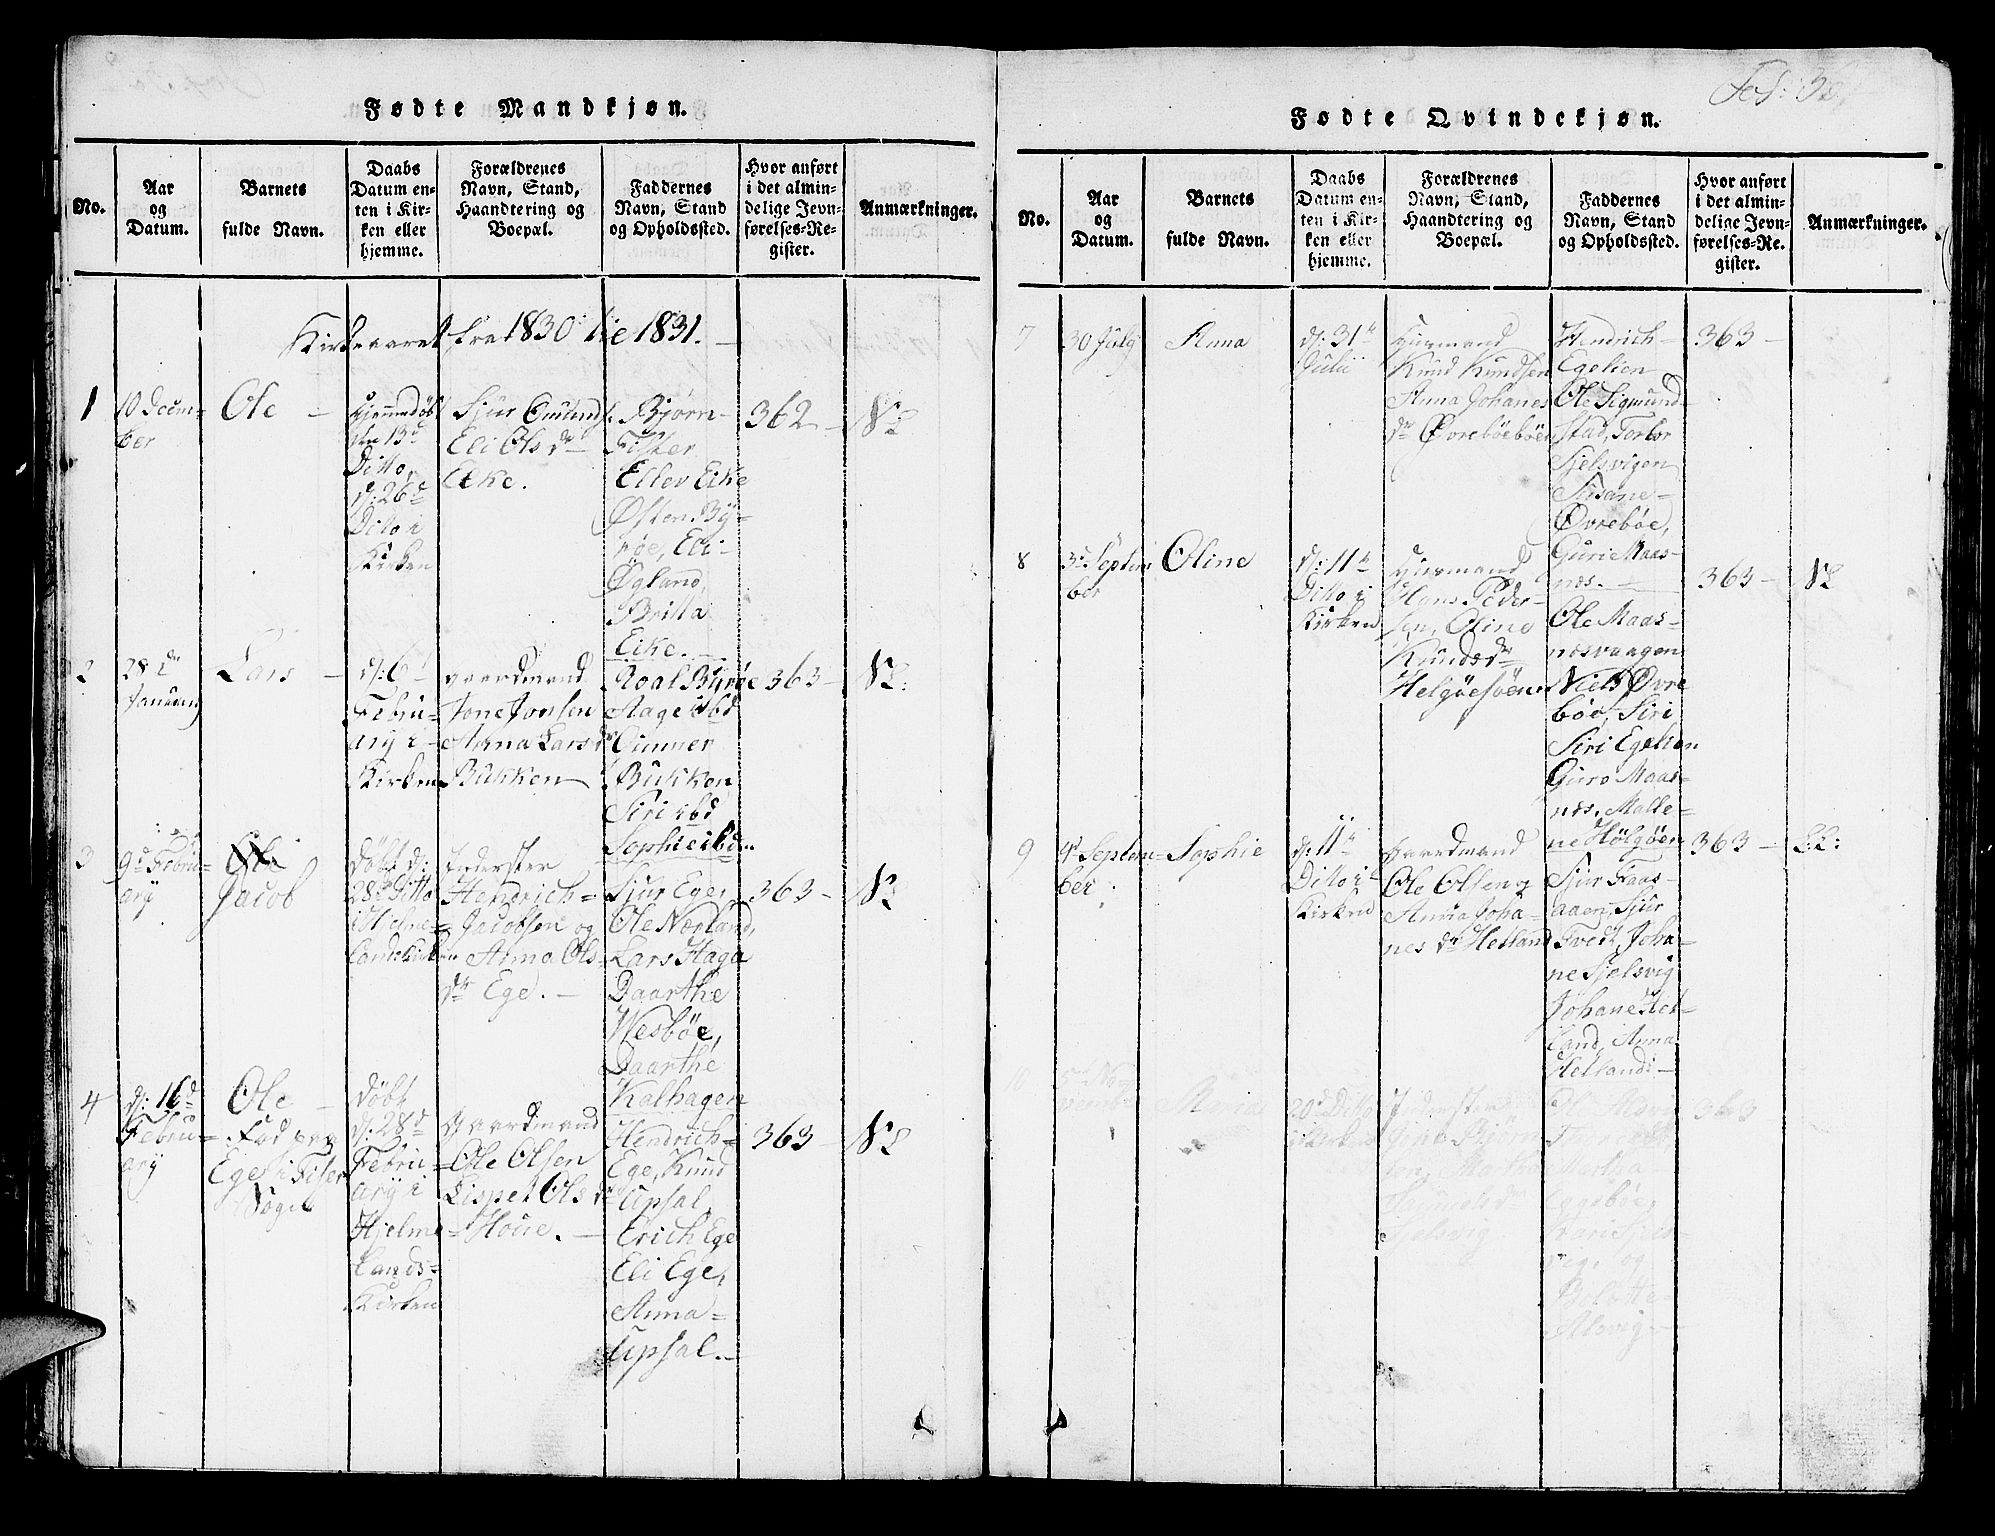 Fødte Mandkjøn.
No.
Aar
og
Datum.
Barnets
fulde Navn.
Daabs
Datum en-
ten i Kir-
ken eller
hjemme.
Forældrenes
Navn, Stand,
Haandtering og
Boepæl.
Faddernes
Navn, Stand
og Opholdssted.
Hvor anført
i det almin-
delige Jevn-
førelses-Re-
gister.
Anmærkninger.
Kirkeaaret fra 1830 til 1831.
1
10 Decem-
ber
Ole
Hjemmedøbt
den 13d
Ditto,
d: 26d
Ditto i
Kirken
Sjur Omunds.
Eli Olsdr
Eike.
Bjørn
Fisker
Ellev Eike
Østen By-
røe, Eli
Øgland,
Britta
Eike.
362
2
28de
Januarij
Lars
d: 6d
Febru-
ary i
Kirken
Gaardmand
Tone Jonsen
Anna Larsdr
Bukken
Roal Byrøe
Aage ibd
Gunner
Bukken
Siri ibd
Sophie ibd
363
3
9d Febru-
ary
Ole
Jacob
Døbt d:
28d Ditto
i Hjelme-
landskirken
Inderster
Hendrich
Jacobsen og
Anna Ols-
dr Ege.
Sjur Ege,
Ole Nærland,
Lars Haga
Daarthe
Wesbøe,
Daarthe
Kalhagen
363
4
d: 16d
Febru-
ary
Ole
Fød paa
Ege i Fister
Sogn
Døbt
d: 28d
Febru-
ary i
Hjelme-
lands-
Kirken
Gaardmand
Ole Olsen
Lispet Olsdr
Houe.
Hendrich
Ege, Knud
Upsal,
Erich Ege
Eli Ege,
Anna
Upsal.
363
Fødte Qvindekjøn.
No.
Aar
og
Datum.
Barnets
fulde Navn.
Daabs
Datum en-
ten i Kir-
ken eller
hjemme.
Forældrenes
Navn, Stand,
Haandtering og
Boepæl.
Faddernes
Navn, Stand
og Opholdssted.
Hvor anført
i det almin-
delige Jevn-
førelses-Re-
gister.
Anmærkninger.
7
30 July
Anna
d: 31te
Julii
Huusmand
Knud Knudsen
Anna Johanes
dr Øvrebøebøen
Hendrich
Egelien
Ole Sigmund-
stad, Torbor
Sjelsvigen
Susane
Øvrebøe,
Guri Maas-
næs.
363
8
3d Septem
ber
Oline
d: 11te
Ditto i
Kirken
Huusmand
Hans Peder-
sen, Oline
Knudsdr
Helgøesøen
Ole Maas-
næsvaagen
Niels Øvre
bøe, Siri
Siri Egelien
Guro Maas-
næs, Malle-
ne Hølgøen
363
9
4d Septem-
ber
Sophie
d: 11te
Ditto i
Kirken
Gaardmand
Ole Olsen og
Anna Joha-
nes dr Helland
Sjur Faas-
aaen, Sjur
Tvedt, Joha-
ne Sjelsvig
Johane Hel-
land, Anna
Helland
363
10
5d No-
vember
20d Ditto
i Kirken
Inderster
Martha
Samuelsdr
Sjelsvig
Martha
Eggebøe,
Kari Sjels-
vig, og
Bolette
Alsvig
363